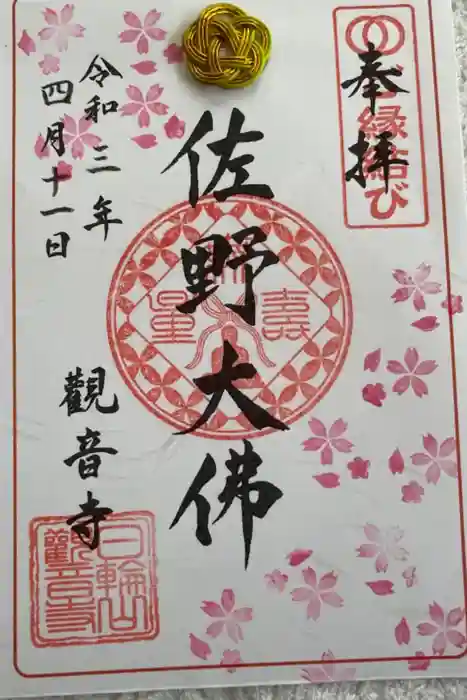 奉拝
縁結び
佐野大佛
令和三年
四月十一日
觀音寺
無量壽
日輪山
觀音寺